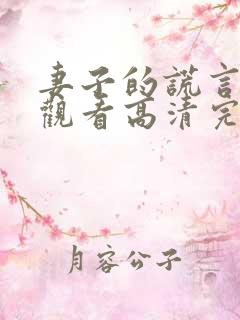 妻子的謊言
觀看高清完
月容公子